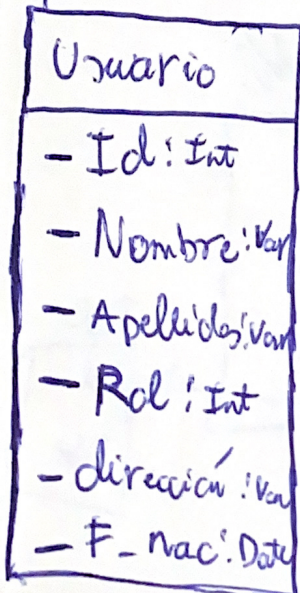 Usuario
- Id: Int
- Nombre: Var
- Apellidos: Var
- Rol: Int
- dirección: Var
- F_nac: Date